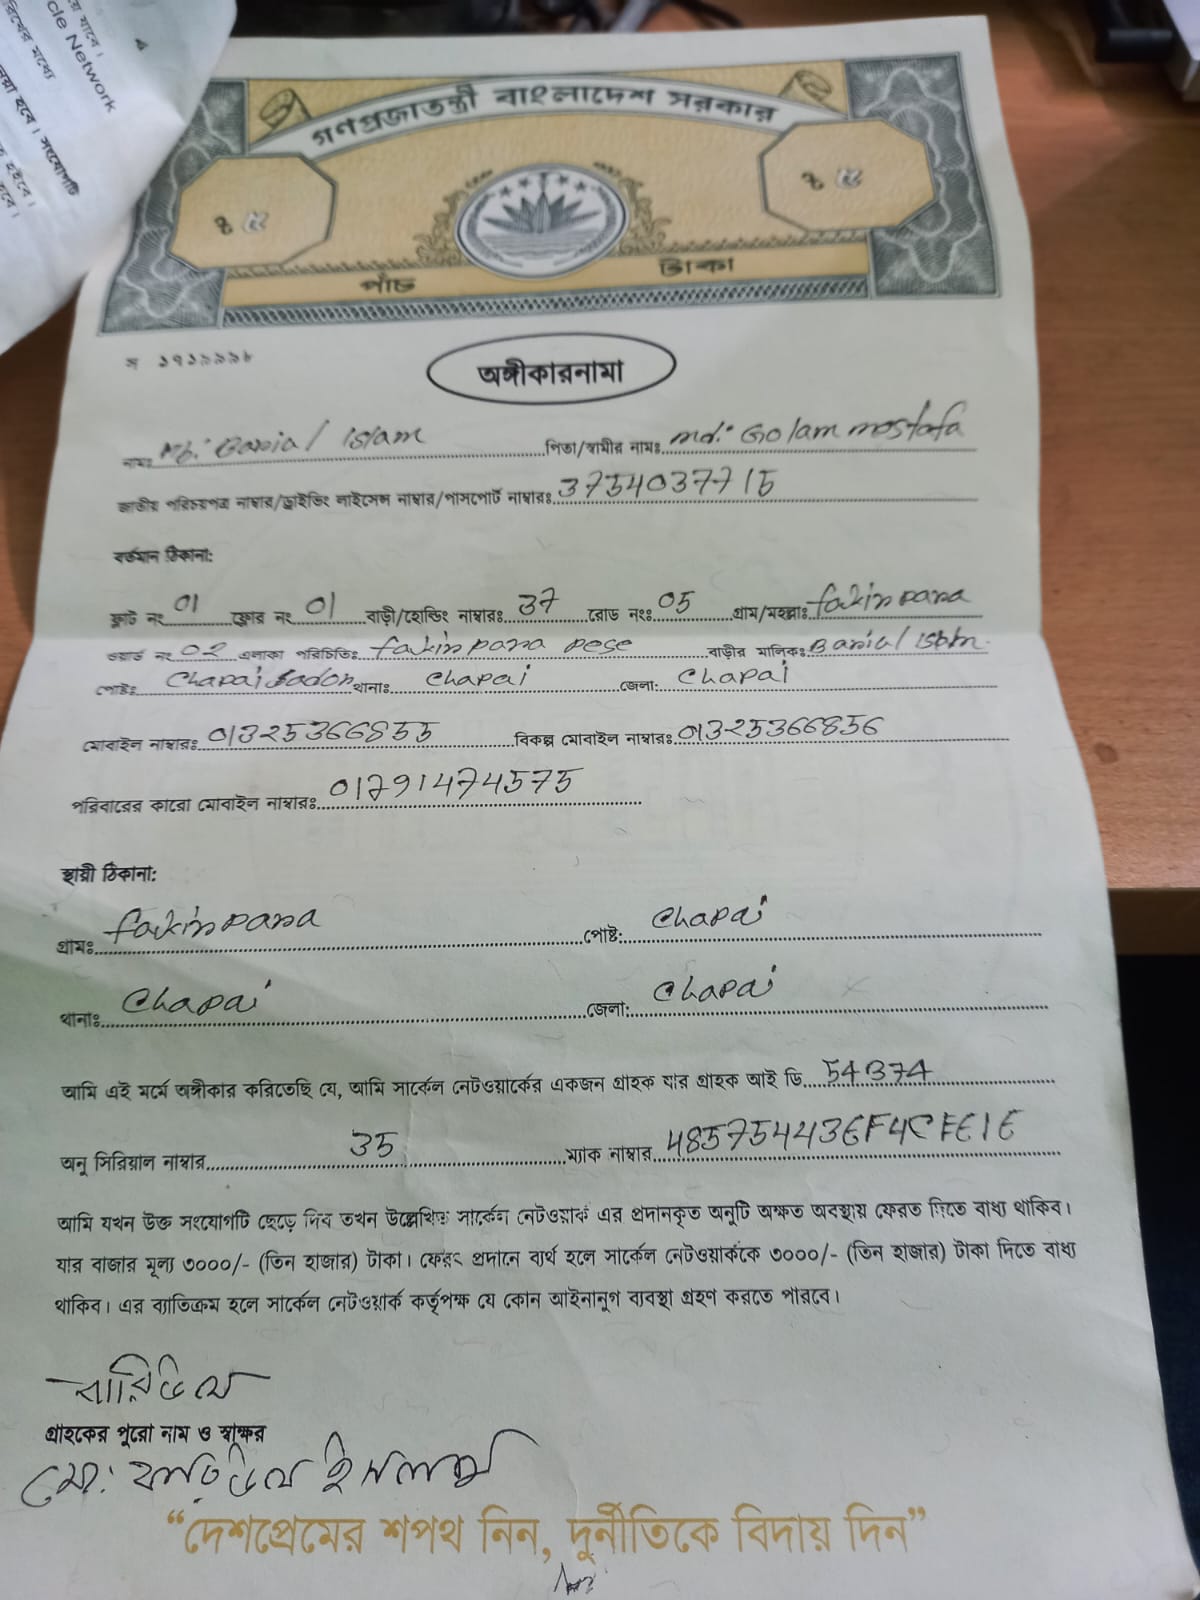 রিখের মধ্যে
cle Network
সংযোগটি
গণপ্রজাতন্ত্রী বাংলাদেশ সরকার
৳ ৫
৳ ৫
পাঁচ টাকা
অঙ্গীকারনামা
নামঃ Md: Barial Islam পিতা/স্বামীর নামঃ md: Golam mostafa
জাতীয় পরিচয়পত্র নাম্বার/ড্রাইভিং লাইসেন্স নাম্বার/পাসপোর্ট নাম্বারঃ 3754037715
বর্তমান ঠিকানা:
ফ্লাট নং 01 ফ্লোর নং 01 বাড়ী/হোল্ডিং নাম্বারঃ 37 রোড নংঃ 05 গ্রাম/মহল্লাঃ fakirpara
ওয়ার্ড নং 02 এলাকা পরিচিতিঃ fakirpara বাড়ীর মালিকঃ Barial Islam
পোষ্টঃ Chapai Sador থানাঃ Chapai জেলা: Chapai
মোবাইল নাম্বারঃ 01325366855 বিকল্প মোবাইল নাম্বারঃ 01325366856
পরিবারের কারো মোবাইল নাম্বারঃ 01791474575
স্থায়ী ঠিকানা:
গ্রামঃ fakirpara পোষ্ট: Chapai
থানাঃ Chapai জেলা: Chapai
আমি এই মর্মে অঙ্গীকার করিতেছি যে, আমি সার্কেল নেটওয়ার্কের একজন গ্রাহক যার গ্রাহক আই ডি 54374
অনু সিরিয়াল নাম্বার 35 ম্যাক নাম্বার 485754436F4CFE1E
আমি যখন উক্ত সংযোগটি ছেড়ে দিব তখন উল্লেখিত সার্কেল নেটওয়ার্ক এর প্রদানকৃত অনুটি অক্ষত অবস্থায় ফেরত দিতে বাধ্য থাকিব।
যার বাজার মূল্য ৩০০০/- (তিন হাজার) টাকা। ফেরৎ প্রদানে ব্যর্থ হলে সার্কেল নেটওয়ার্ককে ৩০০০/- (তিন হাজার) টাকা দিতে বাধ্য
থাকিব। এর ব্যাতিক্রম হলে সার্কেল নেটওয়ার্ক কর্তৃপক্ষ যে কোন আইনানুগ ব্যবস্থা গ্রহণ করতে পারবে।
গ্রাহকের পুরো নাম ও স্বাক্ষর
মো: ইসলাম
“দেশপ্রেমের শপথ নিন, দুর্নীতিকে বিদায় দিন”